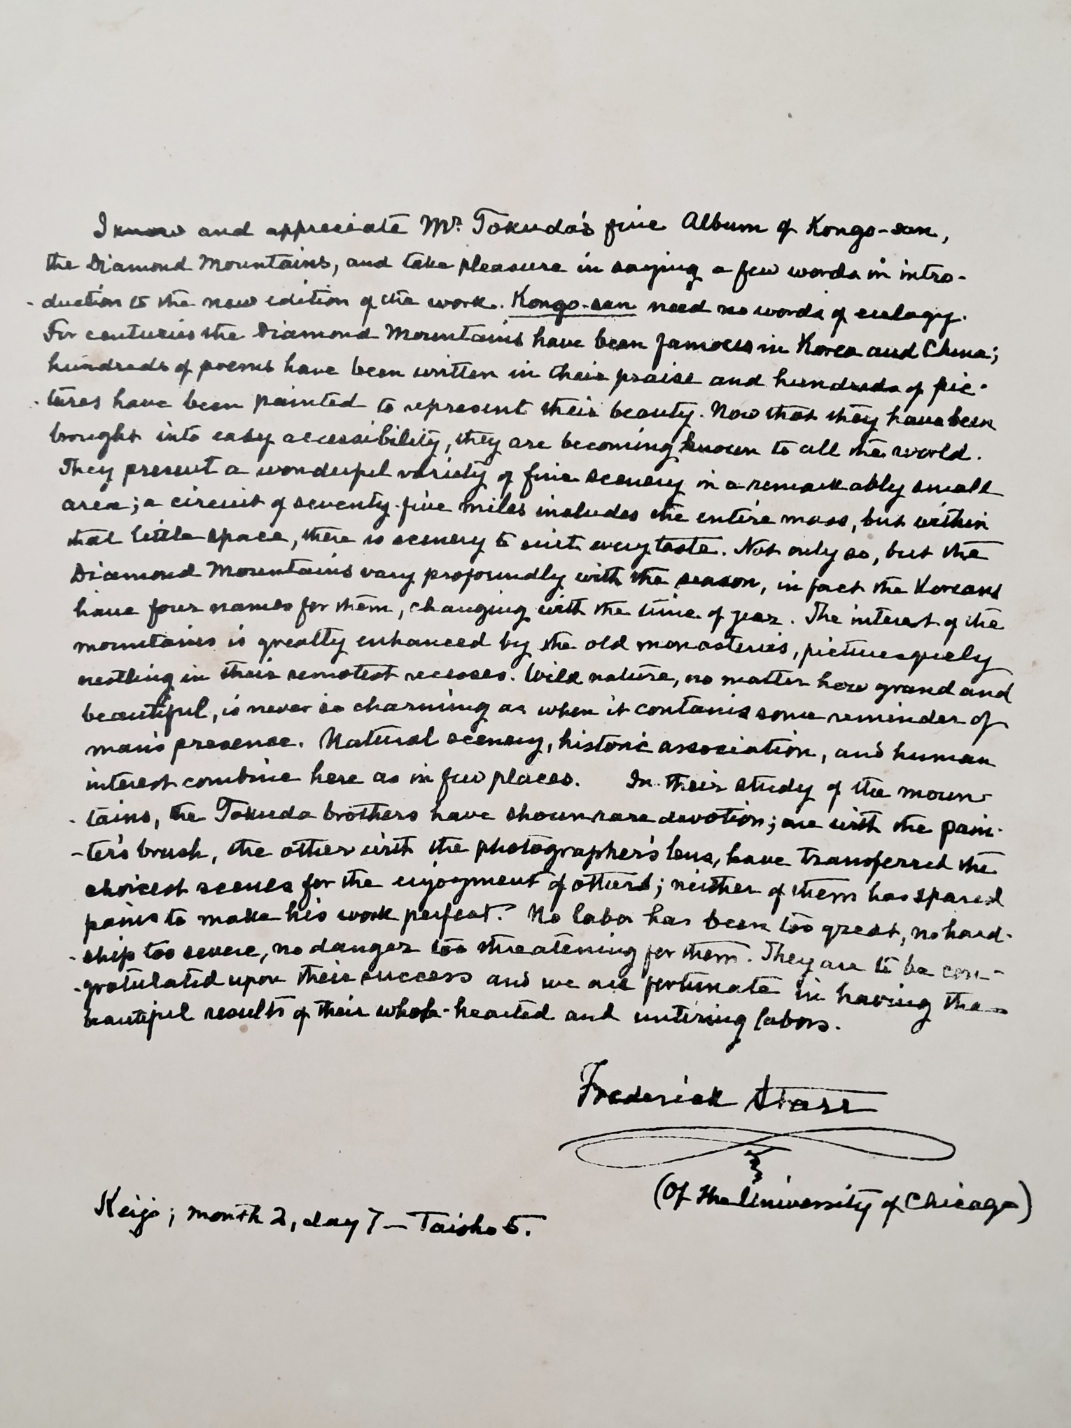 I know and appreciate Mr. Tokuda's fine Album of Kongo-san,
the Diamond Mountains, and take pleasure in saying a few words in intro-
-duction to the new edition of the work. Kongo-san need no words of eulogy.
For centuries the Diamond Mountains have been famous in Korea and China;
hundreds of poems have been written in their praise and hundreds of pic-
-tures have been painted to represent their beauty. Now that they have been
brought into easy accessibility, they are becoming known to all the world.
They present a wonderful variety of fine scenery in a remarkably small
area; a circuit of seventy-five miles includes the entire mass, but within
that little space, there is scenery to suit every taste. Not only so, but the
Diamond Mountains vary profoundly with the season, in fact the Koreans
have four names for them, changing with the time of year. The interest of the
mountains is greatly enhanced by the old monasteries, picturesquely
nestling in their remotest recesses. Wild nature, no matter how grand and
beautiful, is never so charming as when it contains some reminder of
man's presence. Natural scenery, historic association, and human
interest combine here as in few places. In their study of the moun-
-tains, the Tokuda brothers have shown rare devotion; one with the pain-
-ter's brush, the other with the photographer's lens, have transferred the
choicest scenes for the enjoyment of others; neither of them has spared
pains to make his work perfect. No labor has been too great, no hard-
-ship too severe, no danger too threatening for them. They are to be con-
-gratulated upon their success and we are fortunate in having the
beautiful results of their whole-hearted and untiring labors.
Frederick Starr
(Of the University of Chicago)
Keijo; month 2, day 7 — Taisho 5.